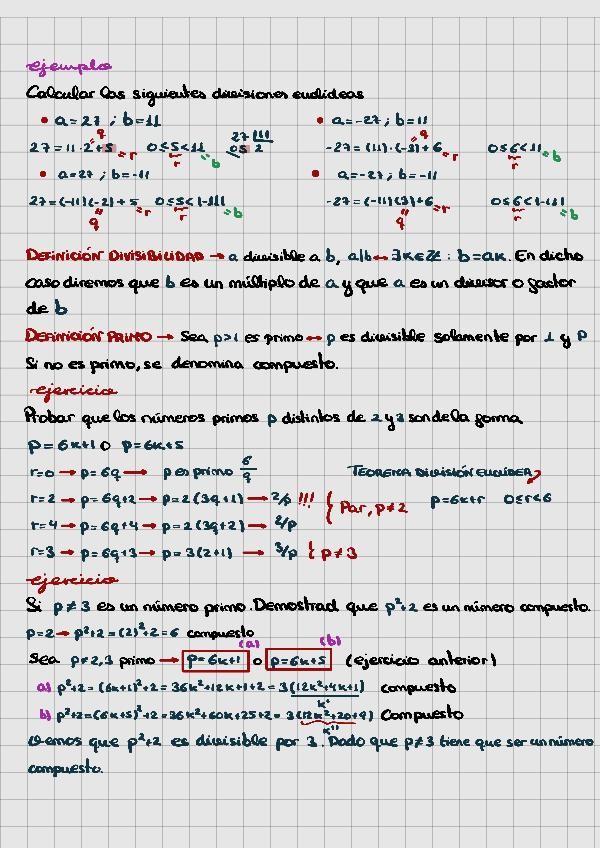 ejemplo
Calcular las siguientes divisiones euclídeas
• a=27 ; b=11
• a=-27 ; b=11
q
q
27 = 11·2+5 =r 0≤5<11 =b r 27 |11 05 2
-27 = (11)·(-3)+6 =r 0≤6<11 =b r
• a=27 ; b=-11
• a=-27 ; b=-11
27 = (-11)(-2)+5 =r 0≤5<|-11| =b
-27 = (-11)(3)+6 =r 0≤6<|-11| =b
q r
q r
DEFINICIÓN DIVISIBILIDAD → a divisible a b, a|b ↔ ∃K∈ℤ : b=aK. En dicho
caso diremos que b es un múltiplo de a y que a es un divisor o factor
de b
DEFINICIÓN PRIMO → Sea p>1 es primo ↔ p es divisible solamente por 1 y P
Si no es primo, se denomina compuesto.
ejercicio
Probar que los números primos p distintos de 2 y 3 son de la forma
P=6K+1 o P=6K+5
r=0 → p=6q → p es primo 6/q
TEOREMA DIVISIÓN EUCLIDEA
r=2 → p=6q+2 → p=2(3q+1) → 2/p !!! { Par, p≠2
p=6K+r 0≤r<6
r=4 → p=6q+4 → p=2(3q+2) → 2/p
r=3 → p=6q+3 → p=3(2+1) → 3/p { p≠3
ejercicio
Si p≠3 es un número primo. Demostrad que p²+2 es un número compuesto.
p=2 → p²+2=(2)²+2=6 compuesto
(a) (b)
Sea p≠2,3 primo → p=6K+1 o p=6K+5 (ejercicio anterior)
a) p²+2=(6K+1)²+2=36K²+12K+1+2=3(12K²+4K+1) compuesto
K'
b) p²+2=(6K+5)²+2=36K²+60K+25+2=3(12K²+20+9) Compuesto
K''
Vemos que p²+2 es divisible por 3. Dado que p≠3 tiene que ser un número
compuesto.